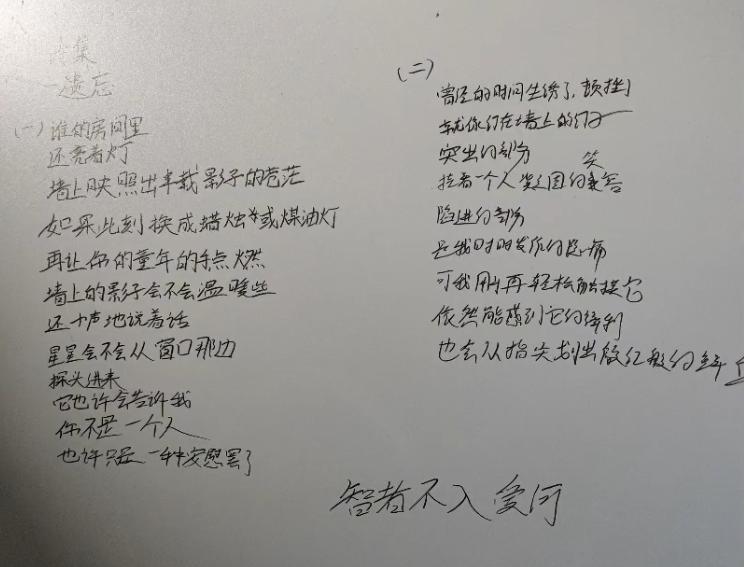 诗集
遗忘
(一) 谁的房间里
还亮着灯
墙上映照出半截影子的苍茫
如果此刻换成蜡烛或煤油灯
再让你的童年的手点燃
墙上的影子会不会温暖些
还小声地说着话
星星会不会从窗口那边
探头进来
它也许会告诉我
你不是一个人
也许只是一种安慰罢了
(二)
曾经的时间生锈了,顿挫了
就像钉在墙上的钉子
突出的部分
挂着一个人的笑容
陷进的部分
是我时时发作的隐痛
可我用手再轻松触摸它
依然能感到它的锋利
也会从指尖划出殷红般的
智者不入爱河